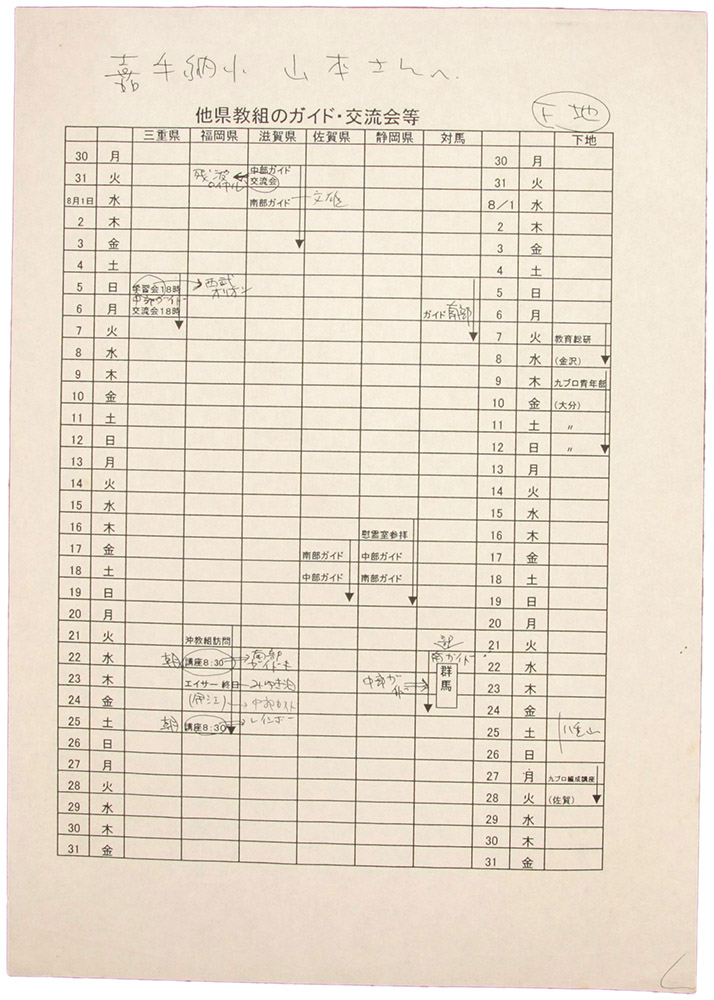 嘉手納小 山本さんへ
他県教組のガイド・交流会等
下地
三重県 福岡県 滋賀県 佐賀県 静岡県 対馬 下地
30 月 30 月
31 火 残波 中部ガイド 31 火
交流会
8月1日 水 南部ガイド 文雄 8/1 水
2 木 2 木
3 金 3 金
4 土 4 土
5 日 学習会18時 西武オリオン 5 日
中部ガイド
6 月 交流会18時 ガイド 南部 6 月
7 火 7 火 教育総研
8 水 8 水 (金沢)
9 木 9 木 九ブロ青年部
10 金 10 金 (大分)
11 土 11 土 〃
12 日 12 日 〃
13 月 13 月
14 火 14 火
15 水 15 水
16 木 慰霊室参拝 16 木
17 金 南部ガイド 中部ガイド 17 金
18 土 中部ガイド 南部ガイド 18 土
19 日 19 日
20 月 20 月
21 火 沖教組訪問 21 火
南ガイド
22 水 朝 講座8:30 南部ガイド 群馬 22 水
23 木 エイサー 終日 みゆき 中部ガイド 23 木
24 金 中部 24 金
25 土 朝 講座8:30 レインボー 25 土 八重山
26 日 26 日
27 月 27 月 九ブロ編成講座
28 火 28 火 (佐賀)
29 水 29 水
30 木 30 木
31 金 31 金